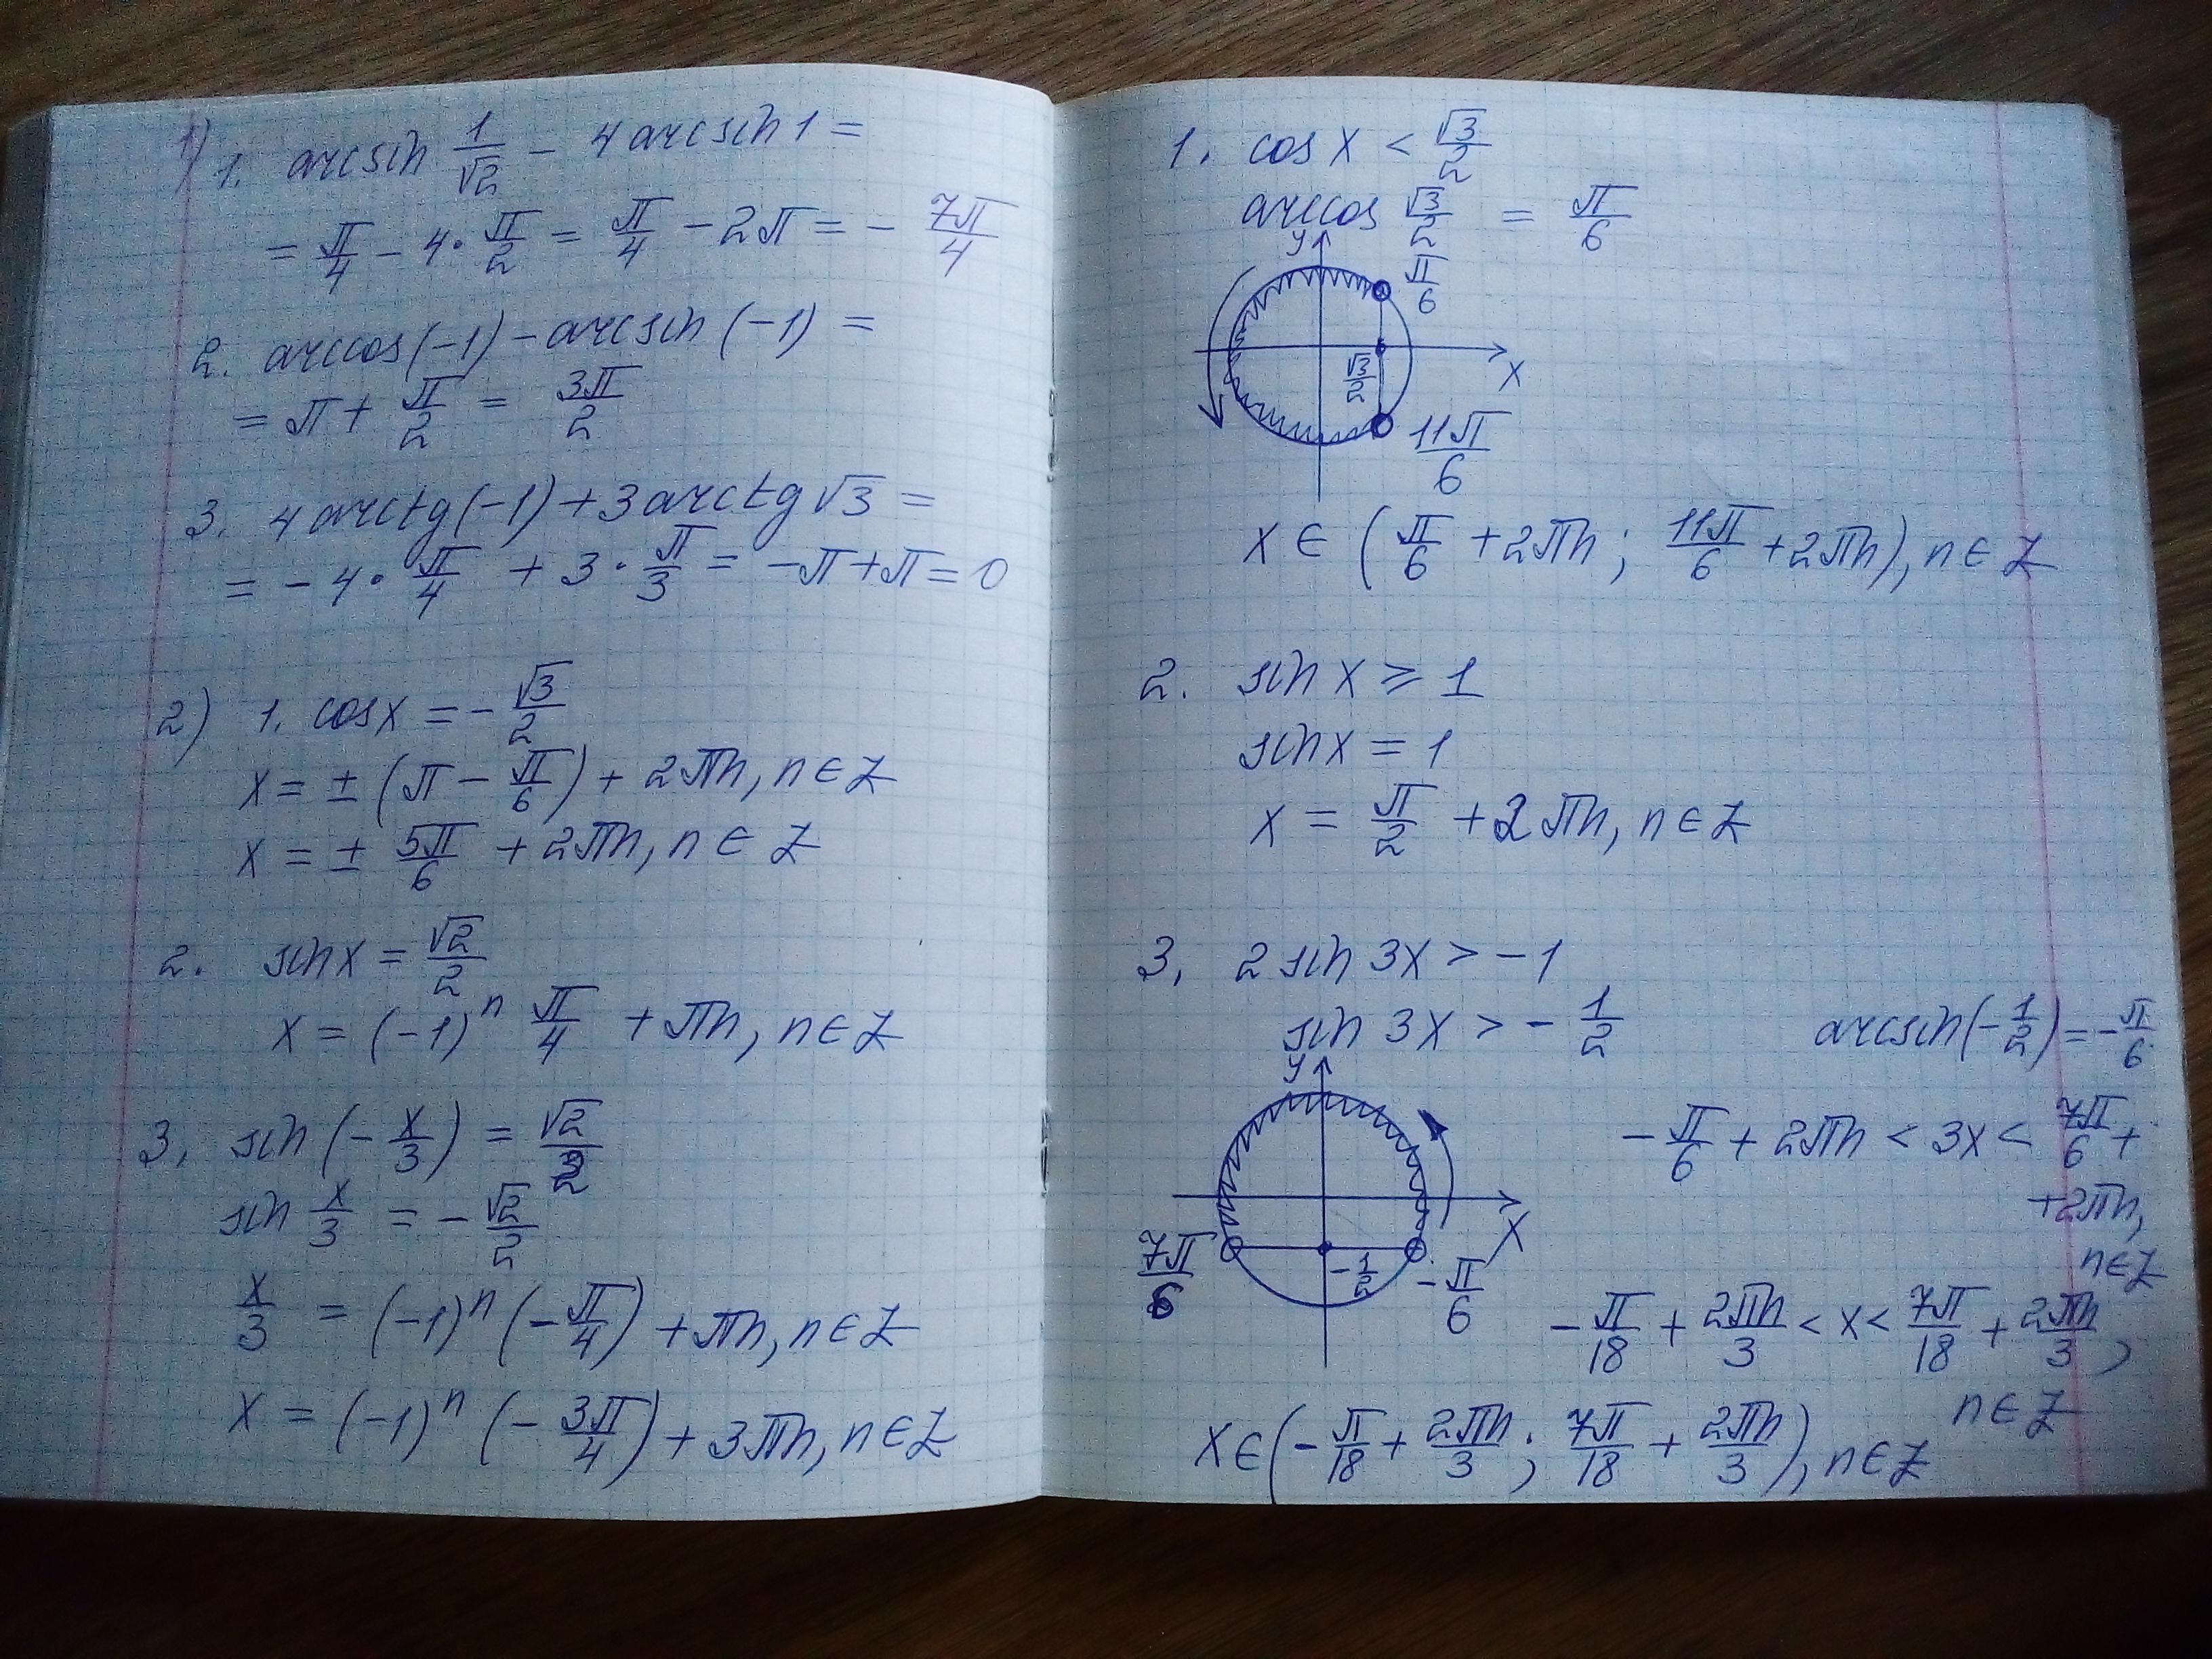 1) 1. arcsin 1/√2 - 4 arcsin 1 =
= π/4 - 4 · π/2 = π/4 - 2π = - 7π/4
2. arccos(-1) - arcsin(-1) =
= π + π/2 = 3π/2
3. 4 arctg(-1) + 3 arctg √3 =
= - 4 · π/4 + 3 · π/3 = -π + π = 0
2) 1. cos x = - √3/2
x = ± (π - π/6) + 2πn, n ∈ Z
x = ± 5π/6 + 2πn, n ∈ Z
2. sin x = √2/2
x = (-1)^n π/4 + πn, n ∈ Z
3. sin (- x/3) = √2/2
sin x/3 = - √2/2
x/3 = (-1)^n (- π/4) + πn, n ∈ Z
x = (-1)^n (- 3π/4) + 3πn, n ∈ Z
1. cos x < √3/2
arccos √3/2 = π/6
y
π/6
√3/2
x
11π/6
x ∈ (π/6 + 2πn; 11π/6 + 2πn), n ∈ Z
2. sin x ⩾ 1
sin x = 1
x = π/2 + 2πn, n ∈ Z
3. 2 sin 3x > -1
sin 3x > - 1/2
arcsin(- 1/2) = - π/6
y
x
7π/6
- 1/2
- π/6
- π/6 + 2πn < 3x < 7π/6 +
+ 2πn,
n ∈ Z
- π/18 + 2πn/3 < x < 7π/18 + 2πn/3,
n ∈ Z
x ∈ (- π/18 + 2πn/3; 7π/18 + 2πn/3), n ∈ Z